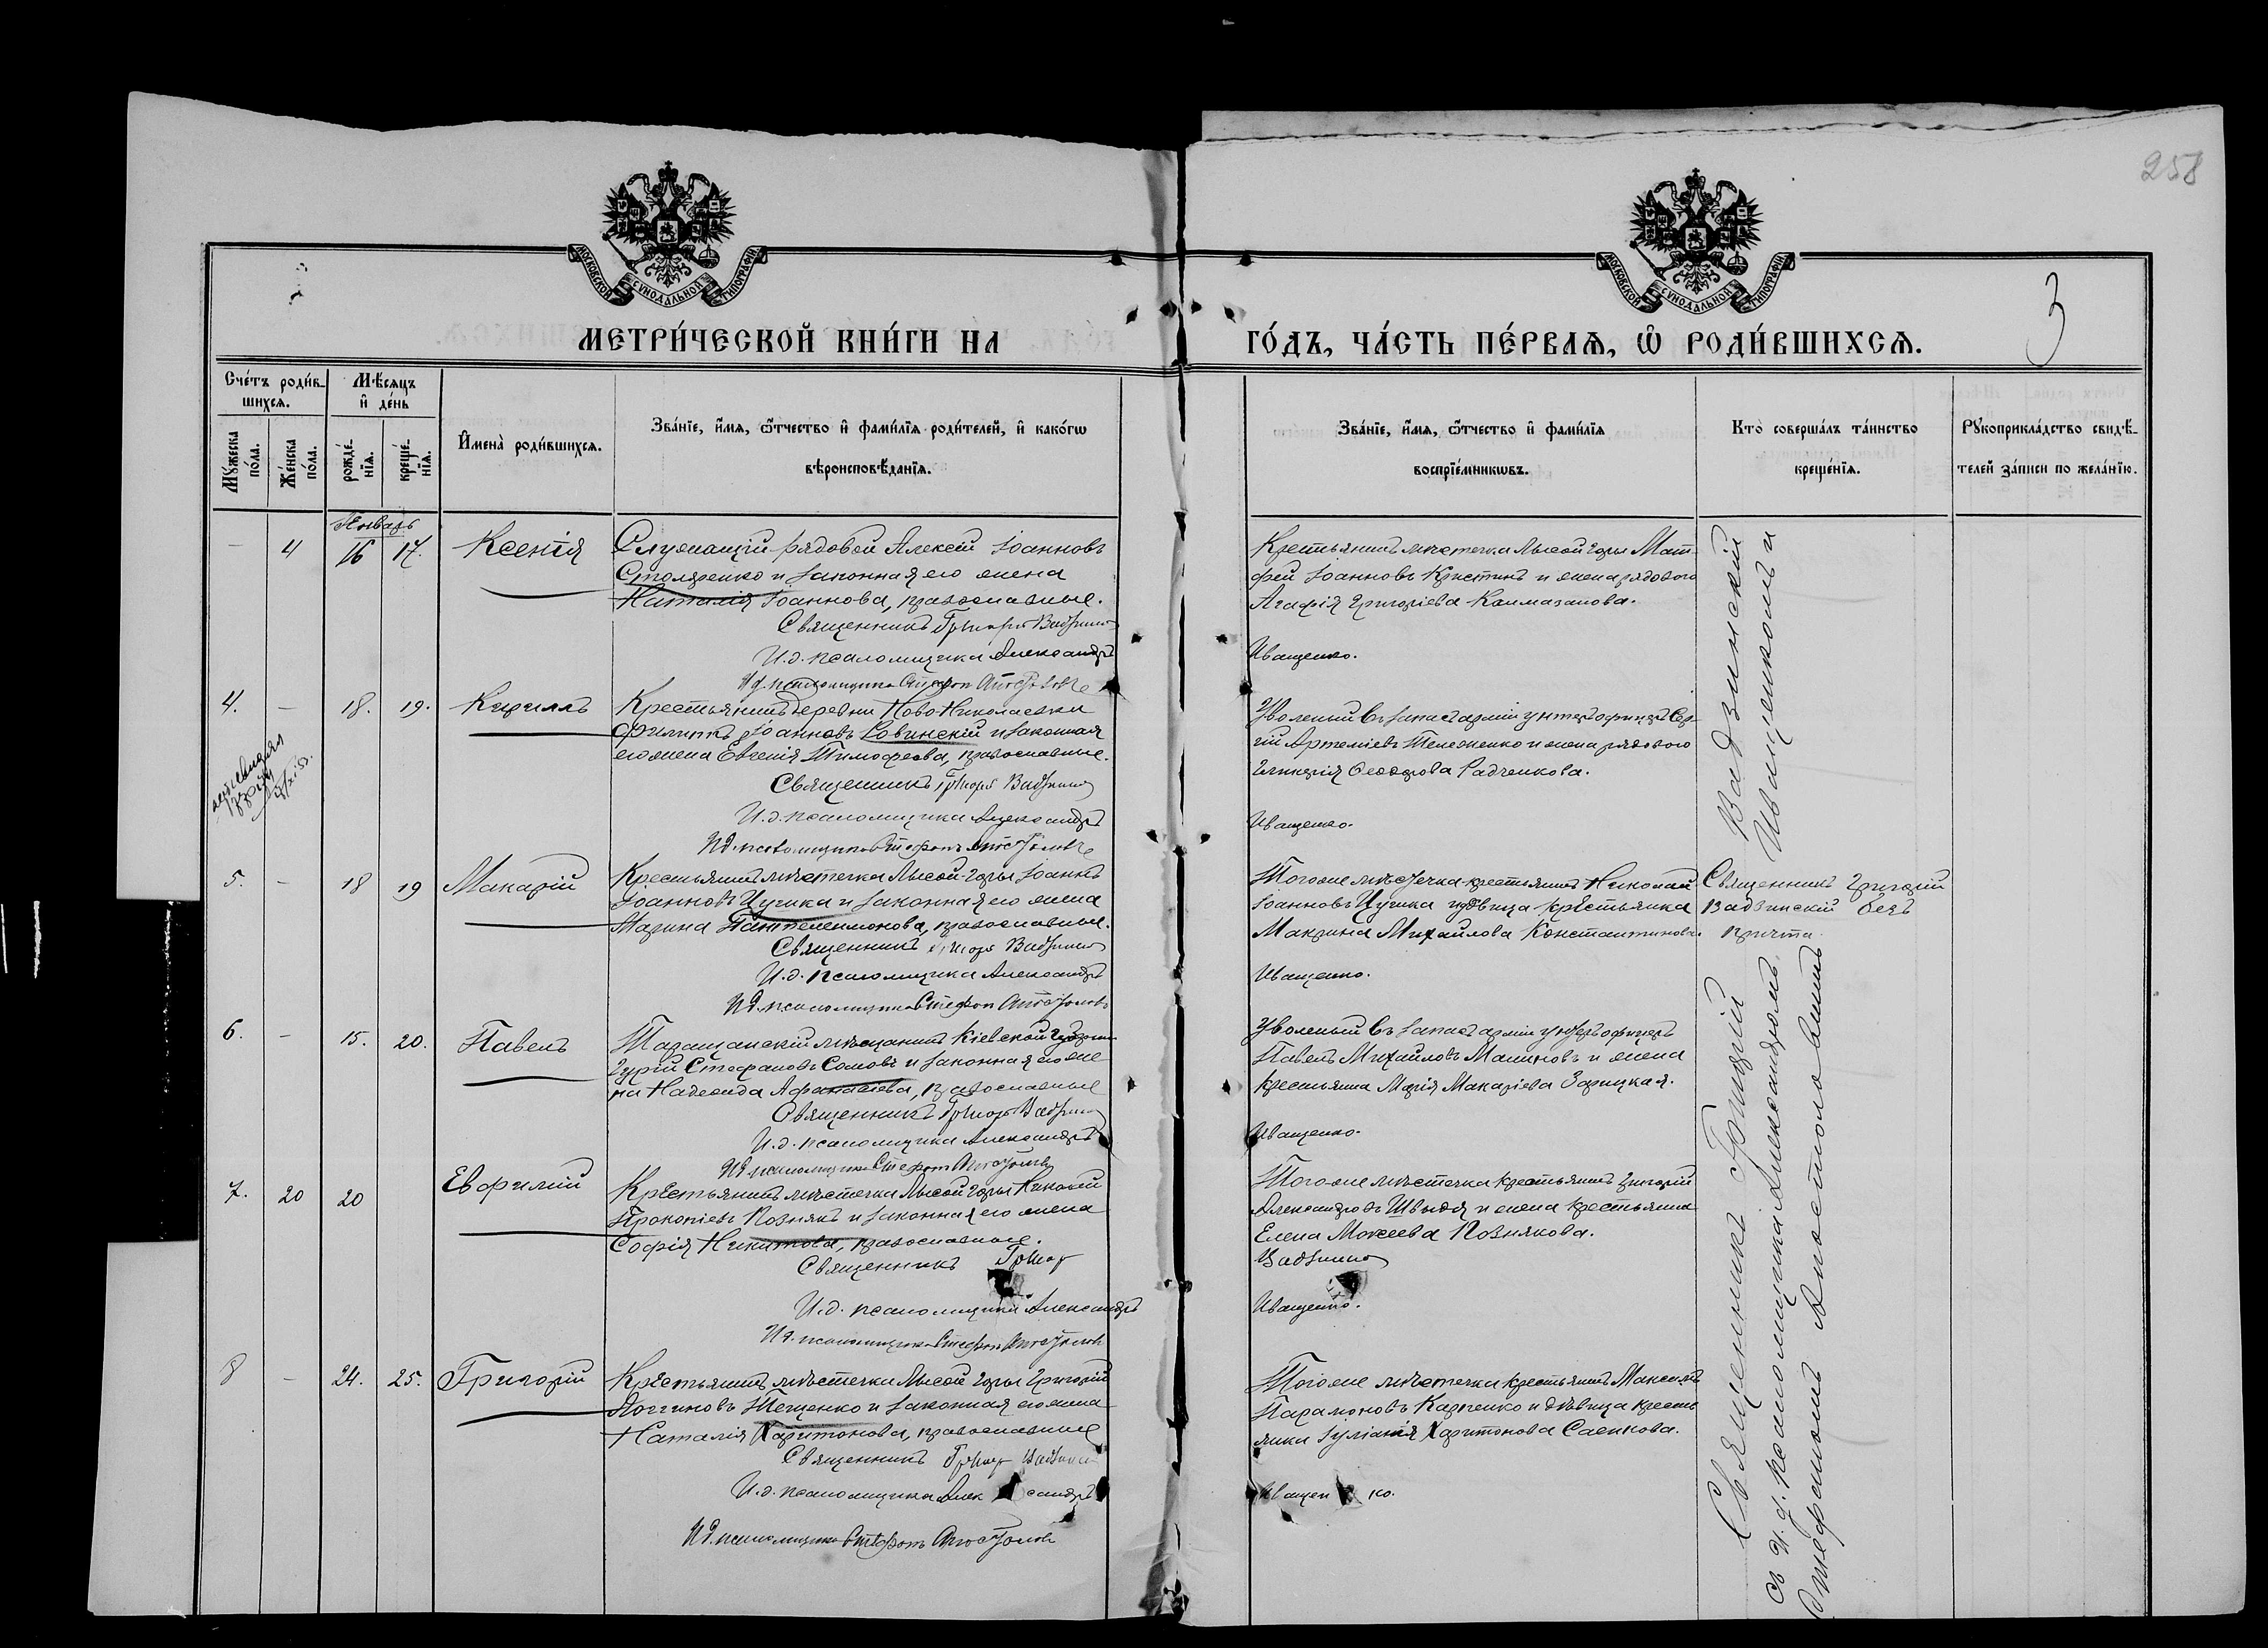 258
МОСКОВСКОЙ СѴНОДАЛЬНОЙ ТИПОГРАФІИ
МОСКОВСКОЙ СѴНОДАЛЬНОЙ ТИПОГРАФІИ
3
МЕТРИ́ЧЕСКОЙ КНИ́ГИ НА ГО́ДЪ, ЧА́СТЬ ПЕ́РВАѦ, Ѿ РОДИ́ВШИХСѦ.
Сче́тъ роди́в-
шихсѧ.
Мѣ́сяцъ
и҆ де́нь
Мꙋ́жеска
по́ла.
Же́нска
по́ла.
рожде́-
нїѧ.
креще́-
нїѧ.
И҆мена̀ роди́вшихсѧ.
Зва́нїе, и҆́мѧ, ѻ҆́тчество и҆ фами́лїѧ роди́телей, и҆ како́гѡ
вѣроисповѣ́данїѧ.
Зва́нїе, и҆́мѧ, ѻ҆́тчество и҆ фами́лїѧ
воспрїе́мникѡвъ.
Кто̀ соверша́лъ та́инство
креще́нїѧ.
Рꙋкоприкла́дство свидѣ́-
телей за́писи по жела́нїю.
Январь
- 4 16 17. Ксенія
Служащій рядовой Алексѣй Іоанновъ
Столяренко и законная его жена
Наталія Іоаннова, православные.
Священникъ Григорій Вадзинскій
И.д. псаломщика Александръ
И.д. псаломщика Стефанъ Апостоловъ
Крестьянинъ мѣстечка Лысой Горы Мат-
фей Іоанновъ Кристинъ и жена рядового
Агафія Григоріева Калмазанова.
Иващенко.
4. - 18. 19. Кириллъ
Крестьянинъ деревни Ново-Николаевки
Филиппъ Іоанновъ Ровинскій и законная
его жена Евгенія Тимофеева, православные.
Священникъ Григорій Вадзинскій
И.д. псаломщика Александръ
И.д. псаломщика Стефанъ Апостоловъ
Уволенный въ запасъ арміи унтеръ офицеръ Сер-
гій Артеміевъ Тележенко и жена рядового
Гликерія Ѳеодорова Радченкова.
Иващенко.
5. - 18 19 Макарій
Крестьянинъ мѣстечка Лысой-Горы Іоаннъ
Іоанновъ Цучика и законная его жена
Марина Пантелеимонова, православные.
Священникъ Григорій Вадзинскій
И.д. псаломщика Александръ
И.д. псаломщика Стефанъ Апостоловъ
Тогоже мѣстечка крестьянинъ Николай
Іоанновъ Цучика и дѣвица крестьянка
Макрина Михайлова Константинова.
Иващенко.
Священникъ Григорій
Вадзинскій безъ
причта.
6. - 15. 20. Павелъ
Таращанскій мѣщанинъ Кіевской губерніи
Гурій Стефановъ Сомовъ и законная его же-
на Надежда Афанасіева, православные
Священникъ Григорій Вадзинскій
И.д. псаломщика Александръ
И.д. псаломщика Стефанъ Апостоловъ
Уволеный въ запасъ арміи унтеръ офицеръ
Павелъ Михайловъ Малиновъ и жена
крестьянина Марія Макаріева Зарицкая.
Иващенко.
7. 20 20 Евфимій
Крестьянинъ мѣстечка Лысой Горы
Прокопіевъ Познякъ и законная его жена
Софія Никитова, православные.
Священникъ Григор
И.д. псаломщика Александръ
И.д. псаломщика Стефанъ Апостоловъ
Тогоже мѣстечка крестьянинъ Григорій
Александровъ Швыдя и жена крестьянина
Елена Моисеева Познякова.
Вадзинскій
Иващенко.
8 - 24. 25. Григорій
Крестьянинъ мѣстечка Лысой Горы Григорій
Логгиновъ Тещенко и законная его жена
Наталія Харитонова, православные
Священникъ Григор Вадзинскій
И.д. псаломщика Александръ
И.д. псаломщика Стефанъ Апостоловъ
Тогоже мѣстечка крестьянинъ Максимъ
Парамоновъ Карпенко и дѣвица кресть-
янка Іуліанія Харитонова Саенкова.
Иващенко.
Священникъ Григорій Вадзинскій
съ И.д. псаломщика Александромъ Иващенкомъ и
Стефаномъ Апостоловымъ